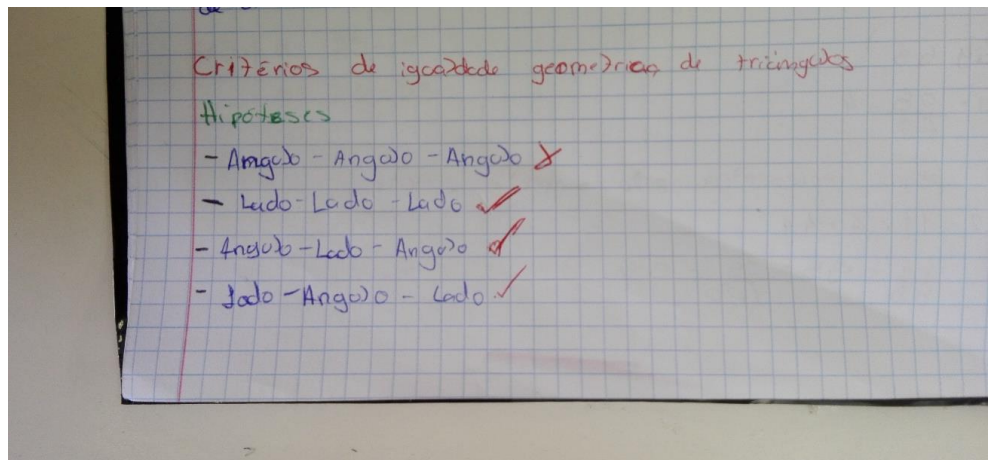 Critérios de igualdade geometrica de triângulos
Hipóteses
- Angulo - Angulo - Angulo ✗
- Lado - Lado - Lado ✓
- Angulo - Lado - Angulo ✓
- Lado - Angulo - Lado ✓